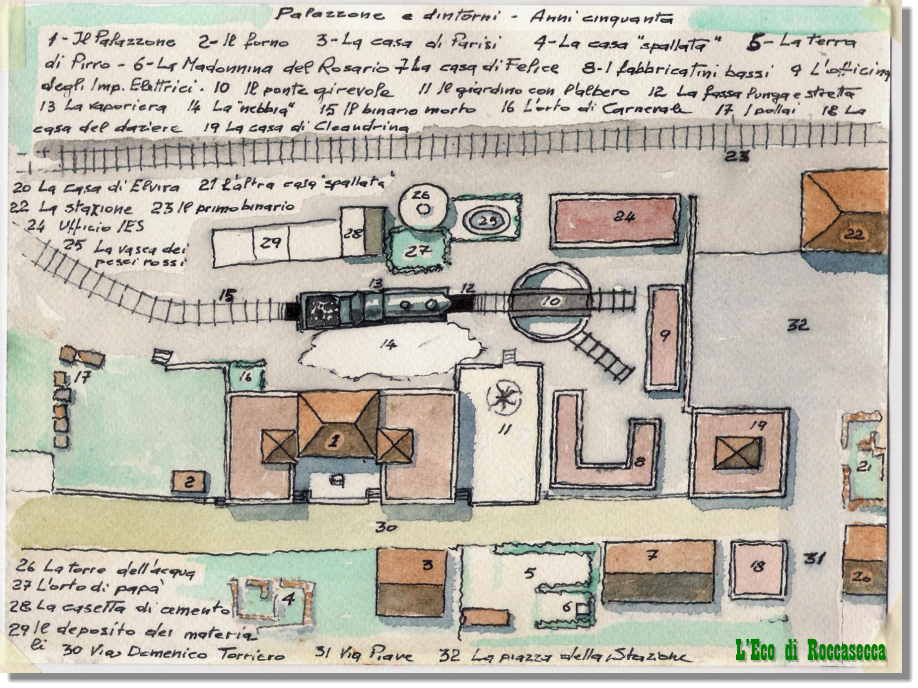 Palazzone e dintorni - Anni cinquanta
1 - Il Palazzone 2 - Il forno 3 - La casa di Parisi 4 - La casa "spallata" 5 - La terra
di Pirro - 6 - La Madonnina del Rosario 7 La casa di Felice 8 - I fabbricatini bassi 9 L'officina
degli Imp. Elettrici. 10 Il ponte girevole 11 Il giardino con l'albero 12 La fossa lunga e stretta
13 La vaporiera 14 La "nebbia" 15 Il binario morto 16 L'orto di Carnevale 17 I pollai 18 La
casa del daziere 19 La casa di Cleandrina
23
20 La casa di Elvira 21 L'altra casa "spallata"
22 La stazione 23 Il primo binario
24 Ufficio IES
25 La vasca dei
pesci rossi
26
29
28
27
25
24
22
15
13
12
10
9
32
14
17
16
1
2
11
8
19
21
30
3
5
7
18
31
20
4
6
26 La torre dell'acqua
27 L'orto di papà
28 La casetta di cemento
29 Il deposito dei materia
li 30 Via Domenico Torriero 31 Via Piave 32 La piazza della Stazione
L'Eco di Roccasecca